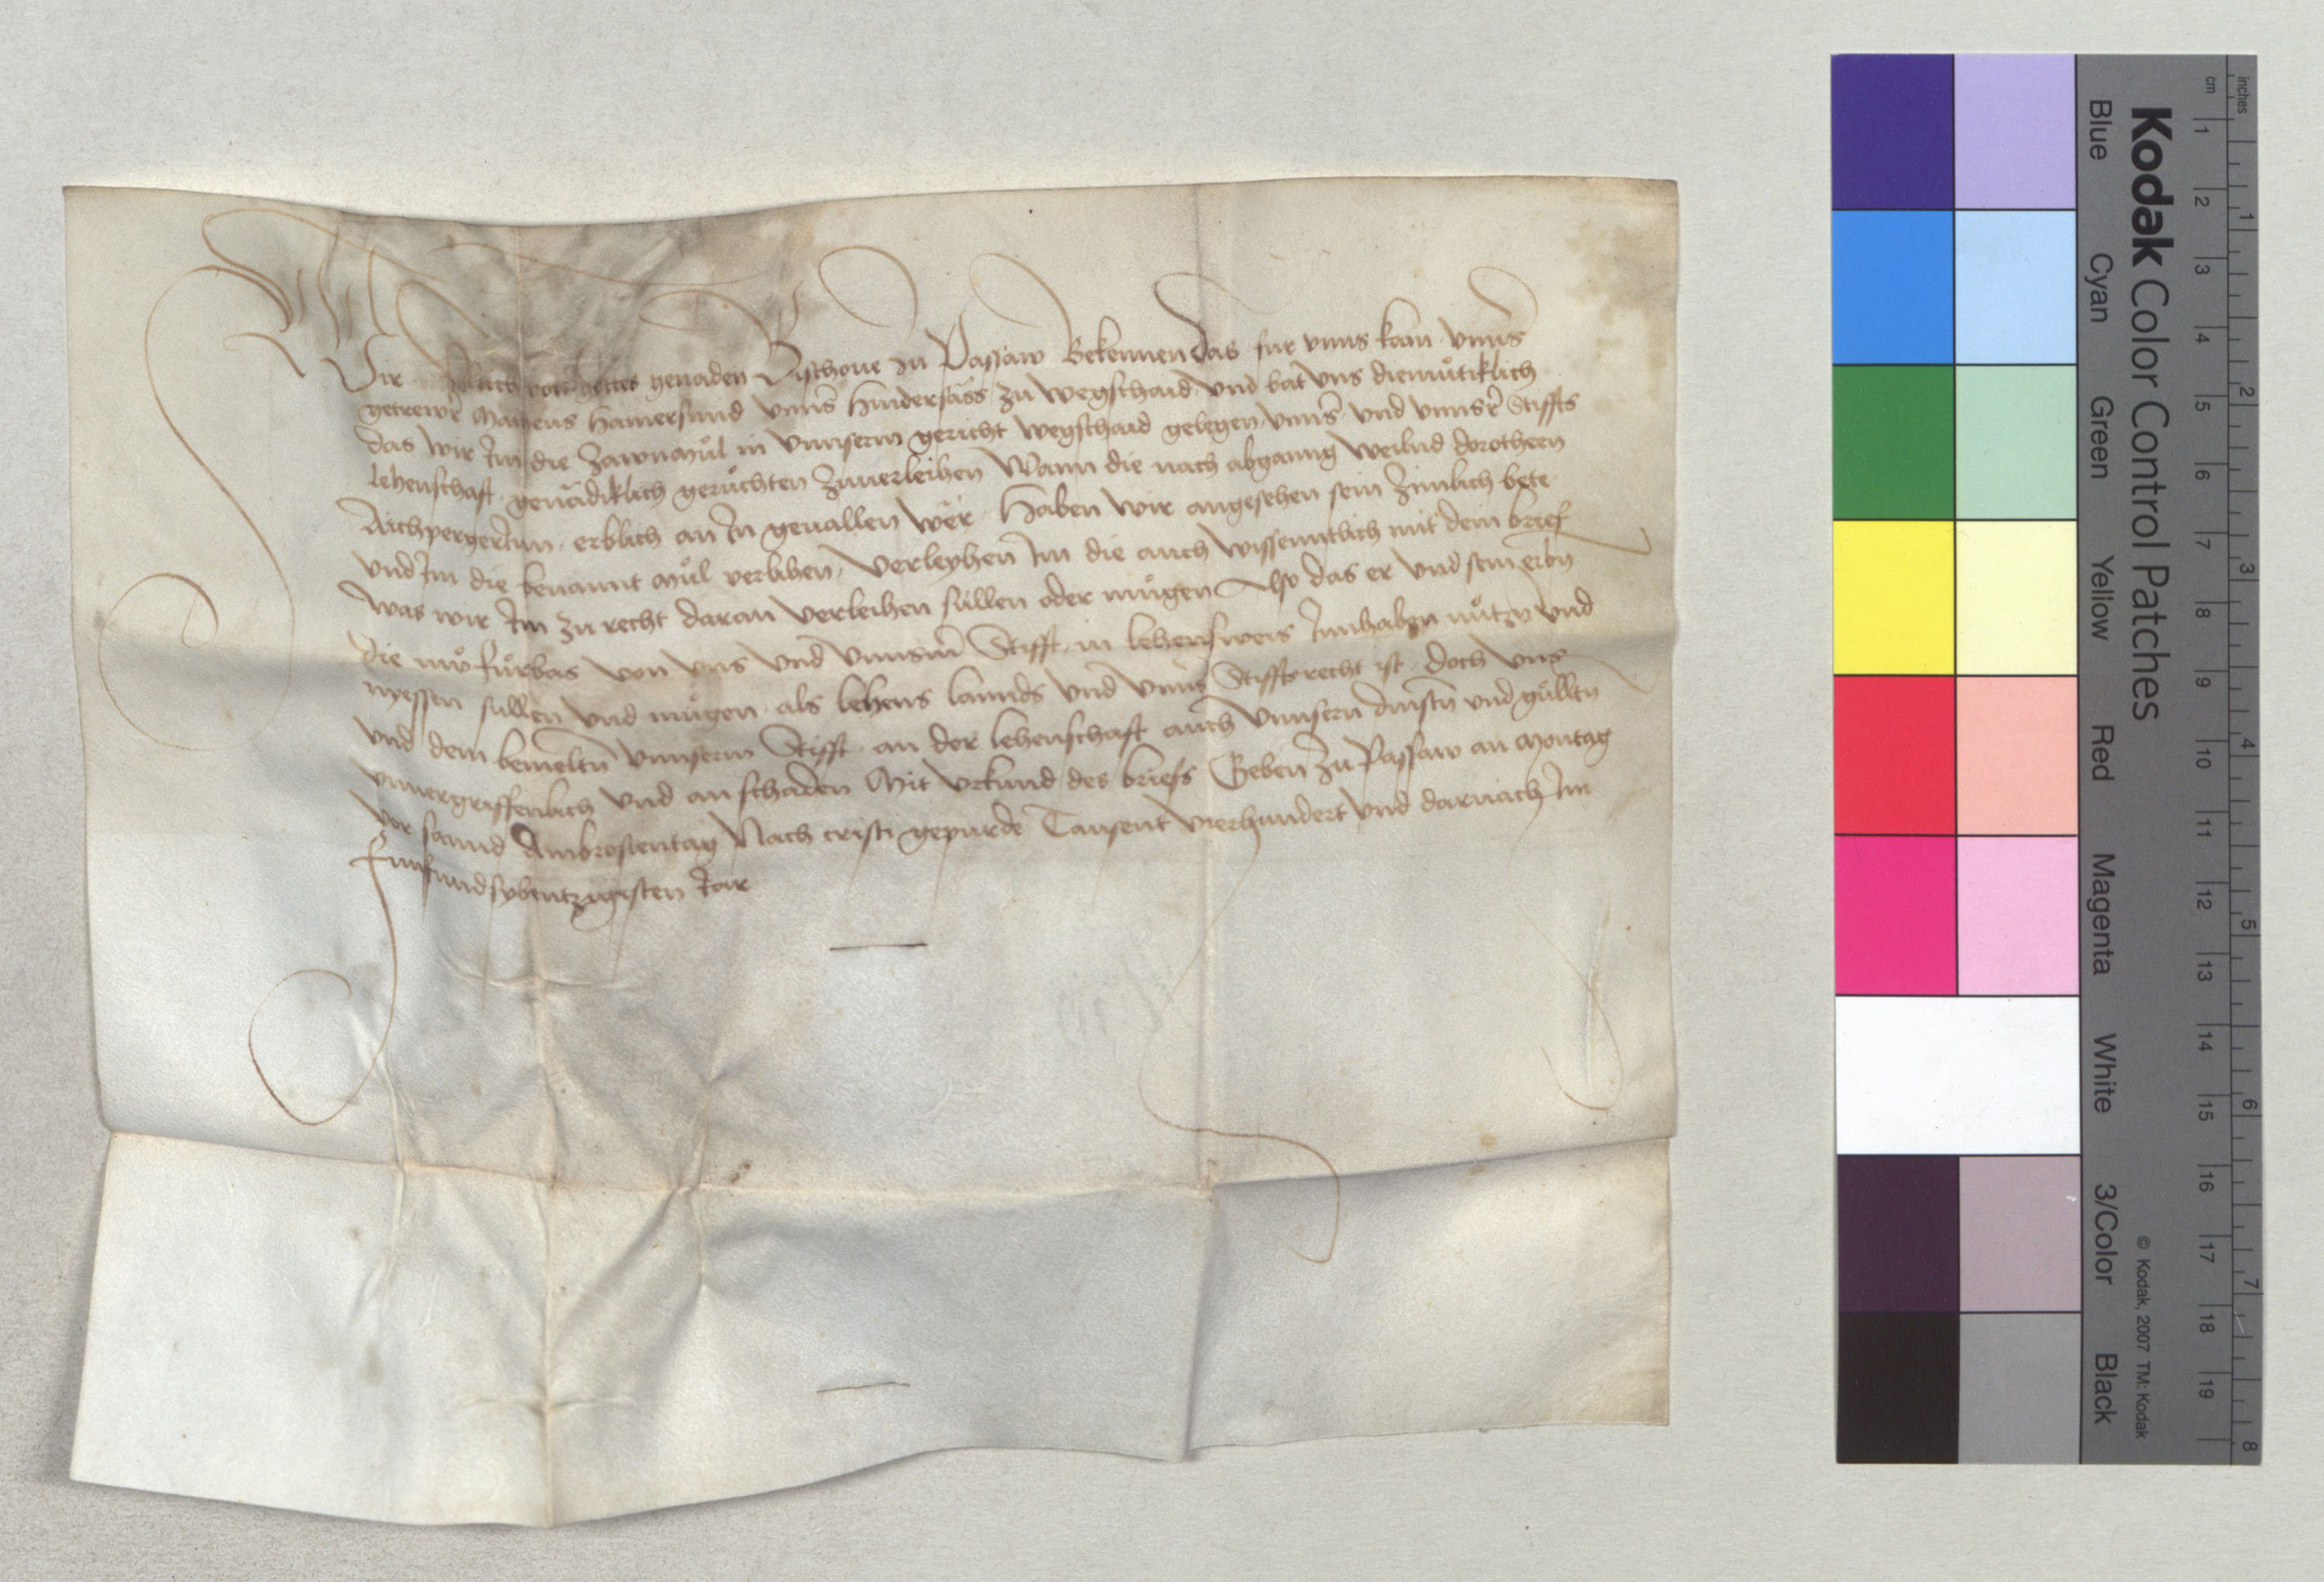 Wir Ulrich von gottes genaden Bischoue zu Passaw Bekennen das fur vnns kam vnnser
getrewr Hamersmid vnnser hindersäss zu wegschaid vnd bat vns diemůtiklich
das wir Im die Zawnmůl in vnnserm gericht wegschaid gelegen vnnser vnd vnnsers Stiffts
lehenschaft genädiklich gerůchten zuuerleihen Wann die nach abganng weilnd dorotheen
Aichpergerinn erblich an In geuallen wër Haben wir angesehen sein zimlich bete
vnd Im die benannt můl verlihen Verleyhen Im die auch wissenntlich mit dem brief
was wir Im zu recht daran verleihen sullen oder mugen Also das er vnd sein erbn
die nw fůrbas von vns vnd vnnserm Stifft in lehensweis Innhaben nůtzn vnd
nyessen sullen vnd mugen als lehens lannds vnd vnnsers Stiffts recht ist doch vns
vnd dem bemeltn vnnserm Stifft an der lehenschaft auch vnnsern dinstn vnd gulltn
vnuergriffenlich vnd an schaden Mit vrkund des briefs Geben zu Passaw an Montag
vor sannd Ambrosientag Nach cristi gepurde Tausent vierhundert vnd darnach Im
fünfundsybentzigisten Iar
Kodak Color Control Patches
Blue Cyan Green Yellow Red Magenta White 3/Color Black
© Kodak, 2007 TM: Kodak
cm 1 2 3 4 5 6 7 8 9 10 11 12 13 14 15 16 17 18 19
inches 1 2 3 4 5 6 7 8